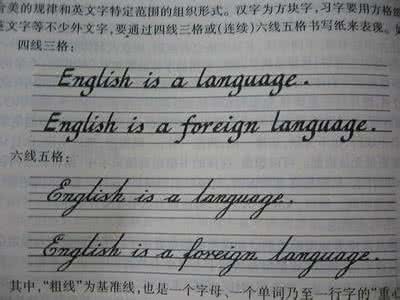 美的规律和英文字特定范围的组织形式。汉字为方块字,习字要用方格
文字等不少外文字,要通过四线三格或(连续)六线五格书写纸来表现。
四线三格:
English is a language.
English is a foreign language.
六线五格:
English is a language.
English is a foreign language.
其中,“粗线”为基准线,也是一个字母、一个单词乃至一行字的“重心